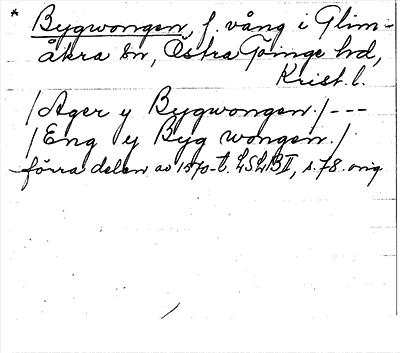 * Bygwongen, f. vång i Glim-
åkra sn, Östra Göinge hd,
Krist. l.
/Ager y Bygwongen./---
/Eng y Byg wongen./
förra delen av 1570-t. LSLBII, s. 78. orig